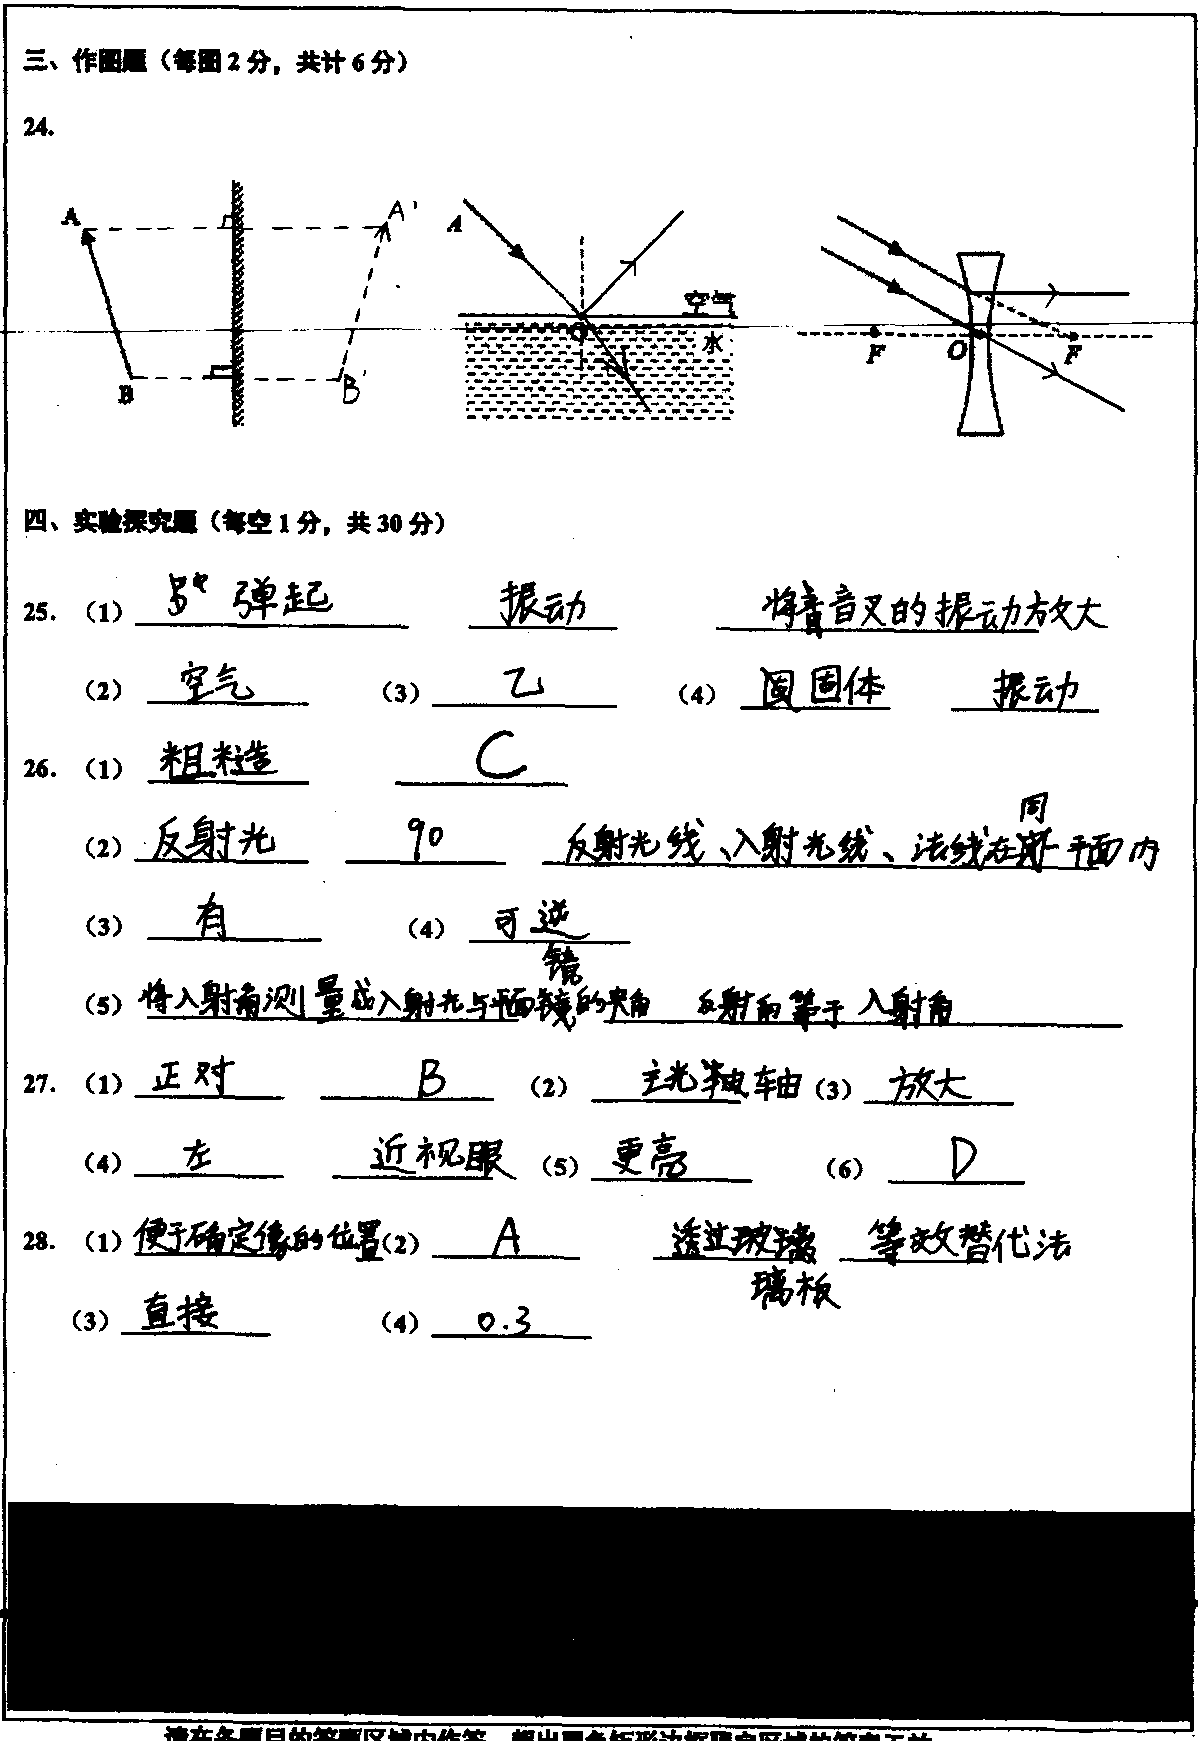 三、作图题（每图 2 分，共计 6 分）
24.
A A' A 空气
水
O F O F
B B'
四、实验探究题（每空 1 分，共 30 分）
25. （1） 弹起 振动 将音叉的振动放大
（2） 空气 （3） 乙 （4） 固体 振动
26. （1） 粗糙 C
（2） 反射光 90 反射光线、入射光线、法线在同一平面内
（3） 有 （4） 可逆
（5） 将入射角测量成入射光与平面镜的夹角 反射角等于入射角
27. （1） 正对 B （2） 主光轴 （3） 放大
（4） 左 近视眼 （5） 更亮 （6） D
28. （1） 便于确定像的位置 （2） A 透过玻璃 等效替代法
璃板
（3） 直接 （4） 0.3
请在各题目的答题区域内作答，超出黑色矩形边框限定区域的答案无效